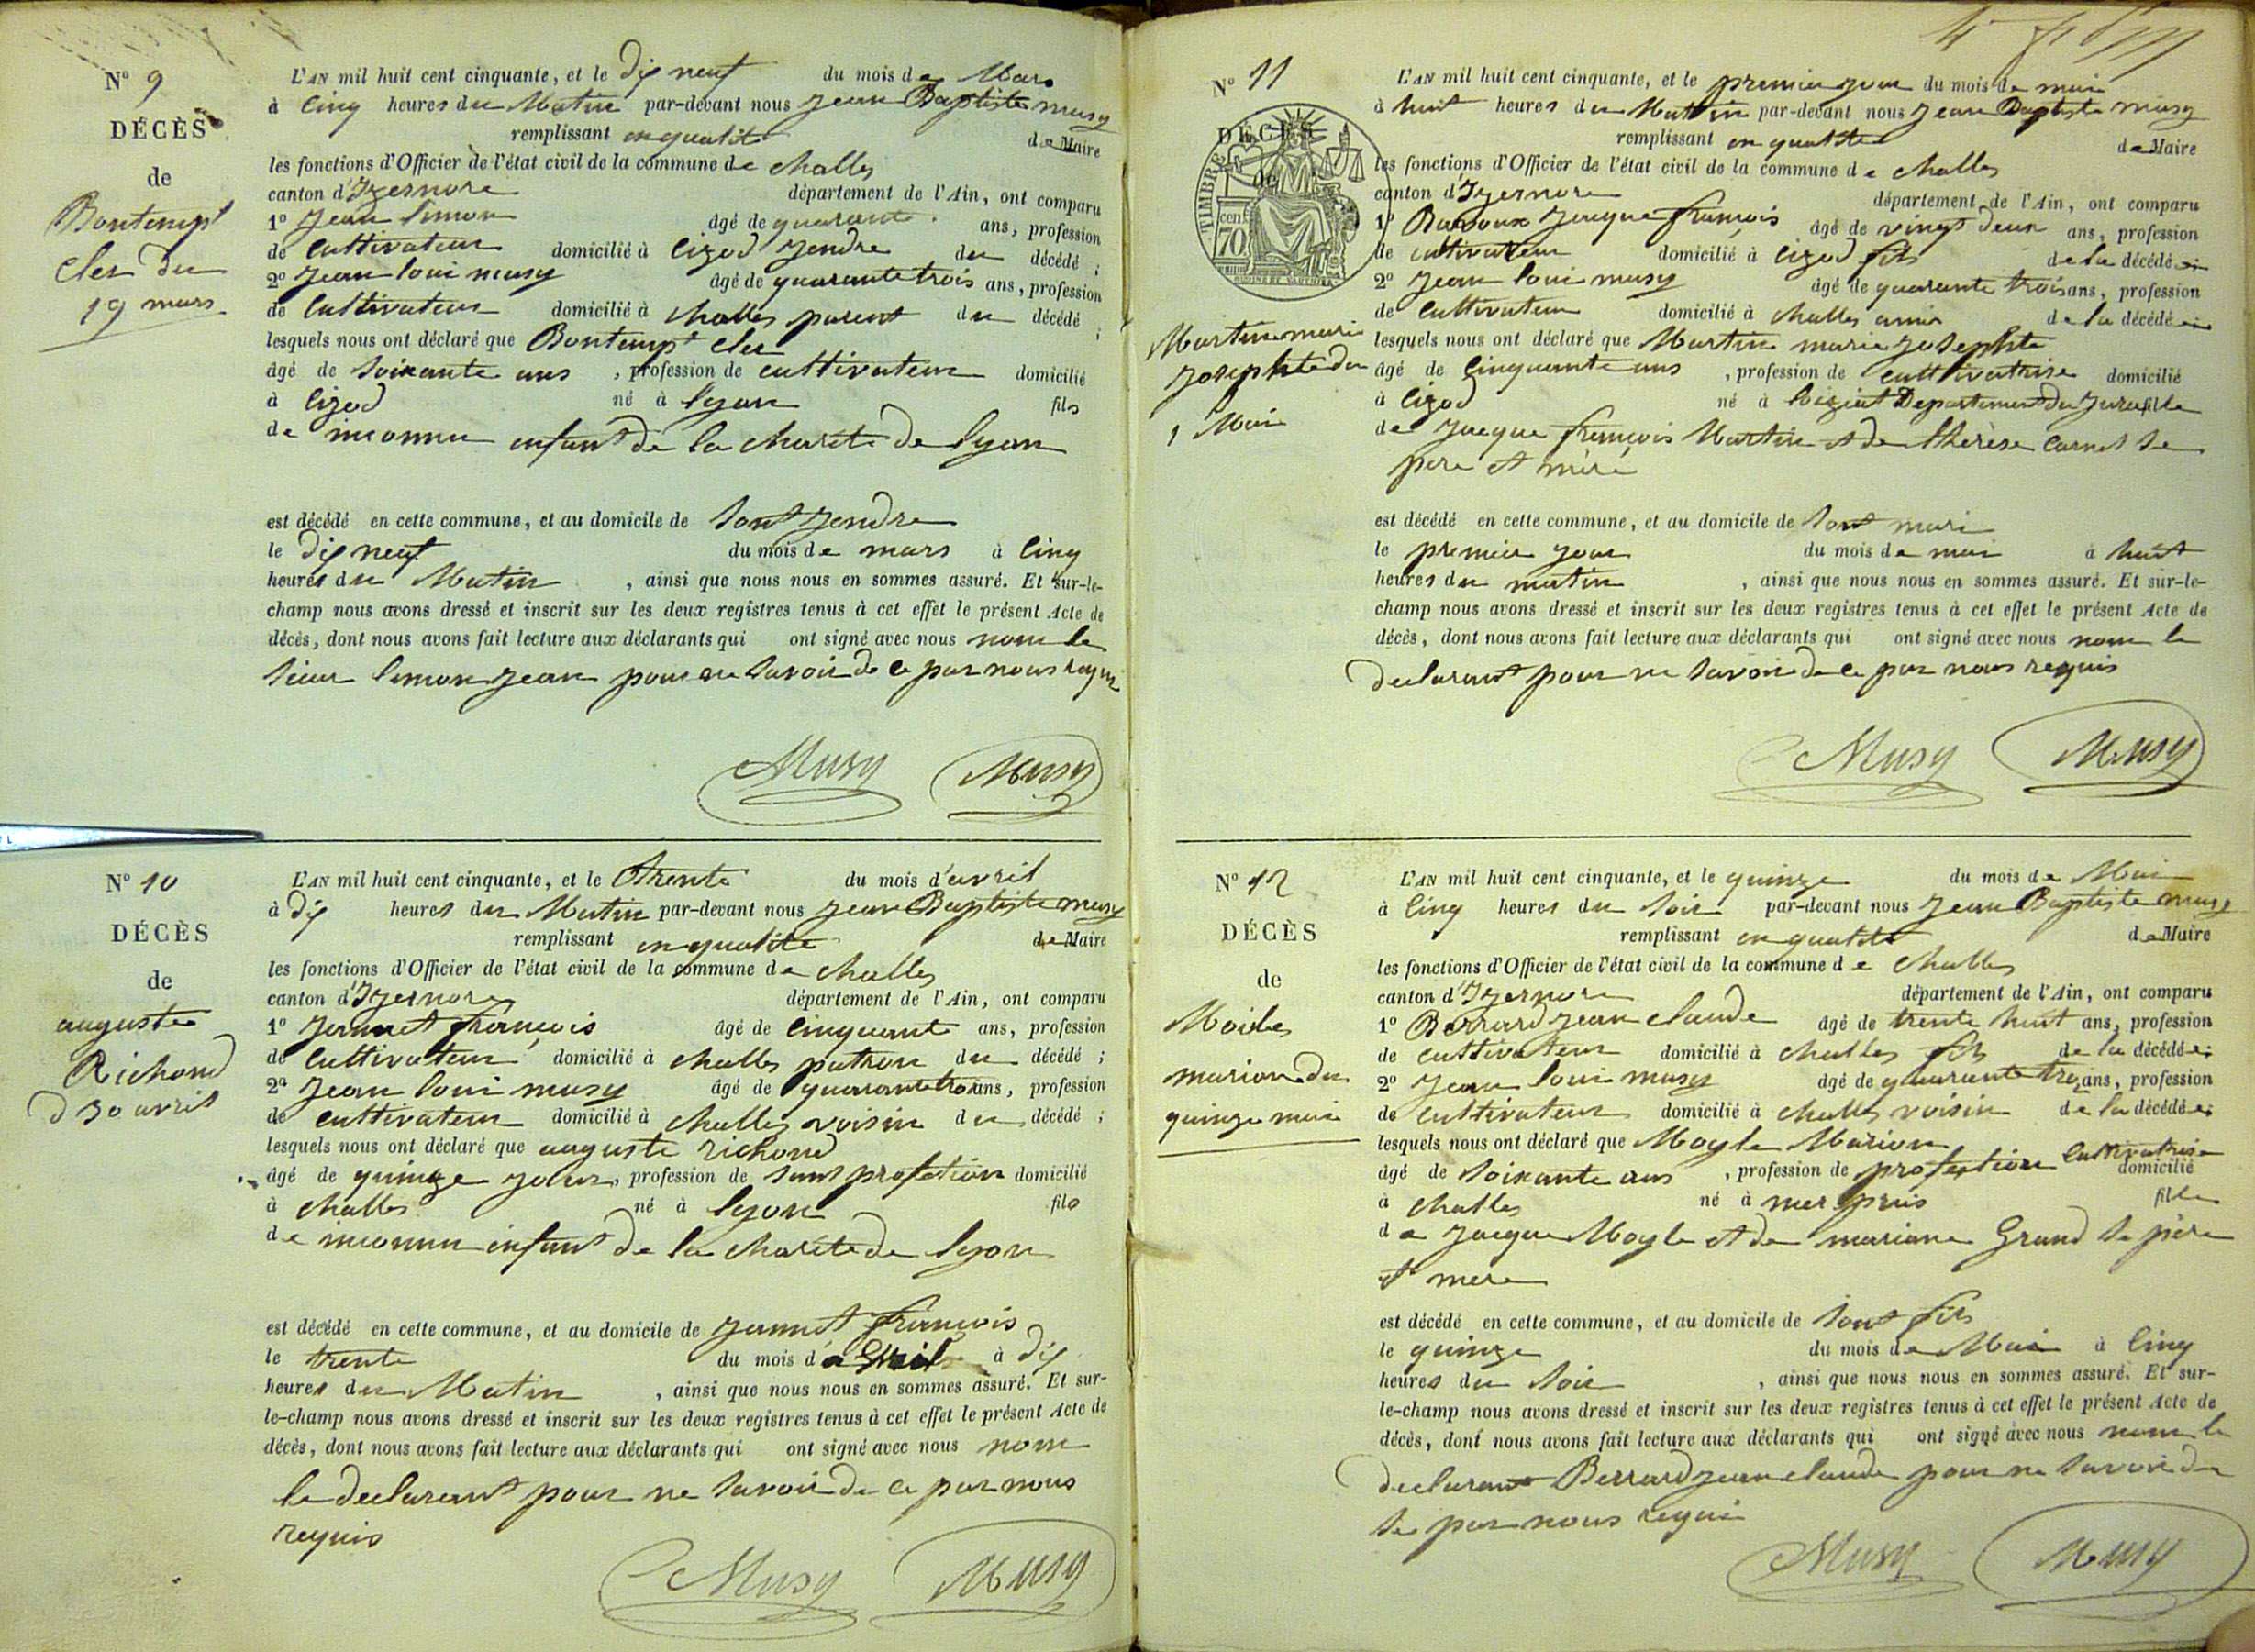 N° 9
DÉCÈS
de
Bontemps
cler du
19 mars
L'AN mil huit cent cinquante, et le dix neuf du mois de Mars
à cinq heures du Matin par-devant nous jean Baptiste musy
remplissant en qualité de Maire
les fonctions d'Officier de l'état civil de la commune de challes
canton d'Izernore département de l'Ain, ont comparu
1° jean simon âgé de quarante ans, profession
de cultivateur domicilié à cizod jendre du décédé ;
2° jean loui musy âgé de quarante trois ans, profession
de cultivateur domicilié à challes parent du décédé ;
lesquels nous ont déclaré que Bontemps cler
âgé de soixante ans , profession de cultivateur domicilié
à cizod né à lyon fils
de inconnu enfant de la charité de lyon
est décédé en cette commune, et au domicile de sont jendre
le dix neuf du mois de mars à cinq
heures du Matin , ainsi que nous nous en sommes assuré. Et sur-le-
champ nous avons dressé et inscrit sur les deux registres tenus à cet effet le présent Acte de
décès, dont nous avons fait lecture aux déclarants qui ont signé avec nous nom le
sieur simon jean pour ne savoir de ce par nous requis
Musy Musy
N° 10
DÉCÈS
de
auguste
Richond
d 30 avril
L'AN mil huit cent cinquante, et le trente du mois d'avril
à dix heures du Matin par-devant nous jean Baptiste musy
remplissant en qualité de Maire
les fonctions d'Officier de l'état civil de la commune de challes
canton d'Izernore département de l'Ain, ont comparu
1° jannet françois âgé de cinquante ans, profession
de cultivateur domicilié à challes patron du décédé ;
2° jean loui musy âgé de quarante trois ans, profession
de cultivateur domicilié à challes voisin du décédé ;
lesquels nous ont déclaré que auguste richond
âgé de quinze jours, profession de sant profetion domicilié
à challes né à lyon fils
de inconnu enfant de la charité de lyon
est décédé en cette commune, et au domicile de jannet françois
le trente du mois d'avril à dix
heures du Matin , ainsi que nous nous en sommes assuré. Et sur-
le-champ nous avons dressé et inscrit sur les deux registres tenus à cet effet le présent Acte de
décès, dont nous avons fait lecture aux déclarants qui ont signé avec nous nom
le declarant pour ne savoir de ce par nous
requis
Musy Musy
N° 11
DÉCÈS
de
TIMBRE
cent. 70
Martin marie
josephte du
1 Mai
L'AN mil huit cent cinquante, et le premier jour du mois de mai
à huit heures du Matin par-devant nous jean Baptiste musy
remplissant en qualité de Maire
les fonctions d'Officier de l'état civil de la commune de challes
canton d'Izernore département de l'Ain, ont comparu
1° jacque françois âgé de vingt deux ans, profession
de cultivateur domicilié à cizod fils de la décédé
2° jean loui musy âgé de quarante trois ans, profession
de cultivateur domicilié à challes amis de la décédé
lesquels nous ont déclaré que Martin marie josephte
âgé de cinquante ans , profession de cultivatrise domicilié
à cizod né à Departement du jura fille
de jacque françois Martin et de therèse carnet se
pere et mère
est décédé en cette commune, et au domicile de sont mari
le premier jour du mois de mai à huit
heures du matin , ainsi que nous nous en sommes assuré. Et sur-le-
champ nous avons dressé et inscrit sur les deux registres tenus à cet effet le présent Acte de
décès, dont nous avons fait lecture aux déclarants qui ont signé avec nous nom le
declarant pour ne savoir de ce par nous requis
Musy Musy
N° 12
DÉCÈS
de
Moiles
marion du
quinze mai
L'AN mil huit cent cinquante, et le quinze du mois de Mai
à cinq heures du soir par-devant nous jean Baptiste musy
remplissant en qualité de Maire
les fonctions d'Officier de l'état civil de la commune de challes
canton d'Izernore département de l'Ain, ont comparu
1° Berrard jean claude âgé de trente huit ans, profession
de cultivateur domicilié à challes fils de la décédé
2° jean loui musy âgé de quarante ans, profession
de cultivateur domicilié à challes voisin de la décédé
lesquels nous ont déclaré que Moyle Marion
âgé de soixante ans , profession de profection cultivatrise domicilié
à challes né à fille
de jacque Moyle et de mariane Grand se père
et mere
est décédé en cette commune, et au domicile de sont fils
le quinze du mois de Mai à cinq
heures du soir , ainsi que nous nous en sommes assuré. Et sur-
le-champ nous avons dressé et inscrit sur les deux registres tenus à cet effet le présent Acte de
décès, dont nous avons fait lecture aux déclarants qui ont signé avec nous nom le
declarant Berrard jean claude pour ne savoir de
se par nous requi
Musy Musy